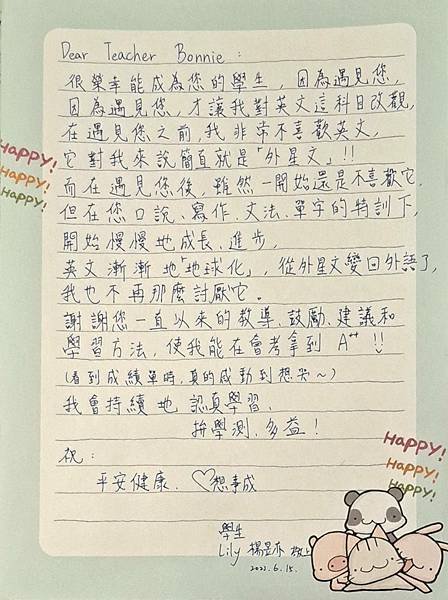 Dear Teacher Bonnie：
很榮幸能成為您的學生，因為遇見您，
因為遇見您，才讓我對英文這科目改觀，
在遇見您之前，我非常不喜歡英文，
它對我來說簡直就是「外星文」!!
而在遇見您後，雖然一開始還是不喜歡它，
但在您口說、寫作、文法、單字的特訓下，
開始慢慢地成長、進步，
英文漸漸地「地球化」，從外星文變回外語了，
我也不再那麼討厭它。
謝謝您一直以來的教導、鼓勵、建議和
學習方法，使我能在會考拿到 A++ !!
(看到成績單時，真的感動到想哭～)
我會持續地認真學習，
拚學測、多益！
祝：
平安健康、♡想事成
學生
Lily 楊 敬上
2021.6.15.
HAPPY!
HAPPY!
HAPPY!
HAPPY!
HAPPY!
HAPPY!